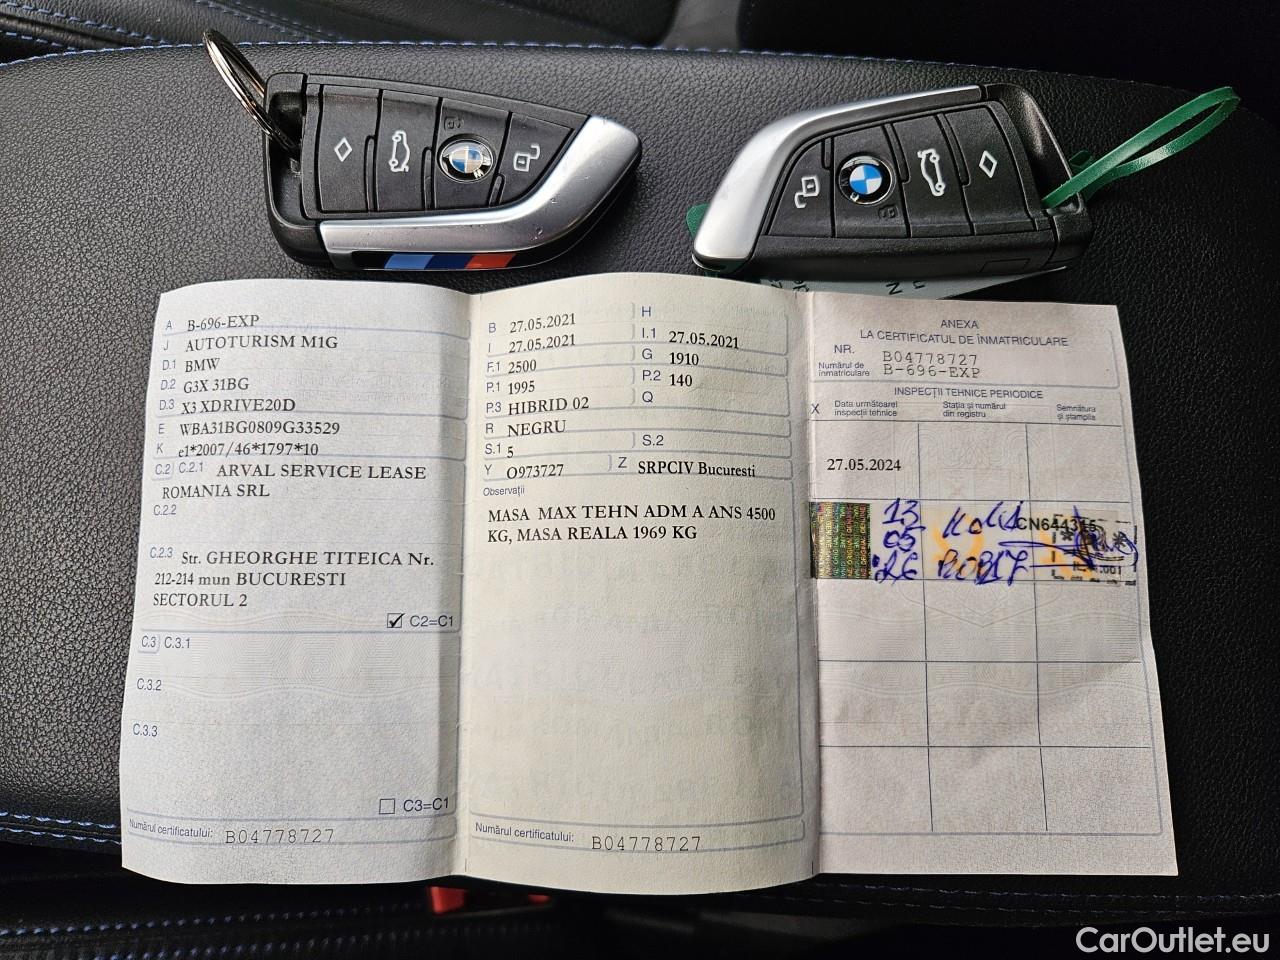 A B-696-EXP
J AUTOTURISM M1G
D.1 BMW
D.2 G3X 31BG
D.3 X3 XDRIVE20D
E WBA31BG0809G33529
K e1*2007/46*1797*10
C.2 C.2.1 ARVAL SERVICE LEASE
ROMANIA SRL
C.2.2
C.2.3 Str. GHEORGHE TITEICA Nr.
212-214 mun BUCURESTI
SECTORUL 2
C2=C1
C.3 C.3.1
C.3.2
C.3.3
C3=C1
Numărul certificatului: B04778727
B 27.05.2021 H
I 27.05.2021 I.1 27.05.2021
F.1 2500 G 1910
P.1 1995 P.2 140
P.3 HIBRID 02 Q
R NEGRU
S.1 5 S.2
Y O973727 Z SRPCIV Bucuresti
Observații
MASA MAX TEHN ADM A ANS 4500
KG, MASA REALA 1969 KG
Numărul certificatului: B04778727
ANEXA
LA CERTIFICATUL DE ÎNMATRICULARE
NR. B04778727
Numărul de înmatriculare B-696-EXP
INSPECȚII TEHNICE PERIODICE
X Data următoarei inspecții tehnice Stația și numărul din registru Semnătura și ștampila
27.05.2024
13 05 26
CN644315
CarOutlet.eu